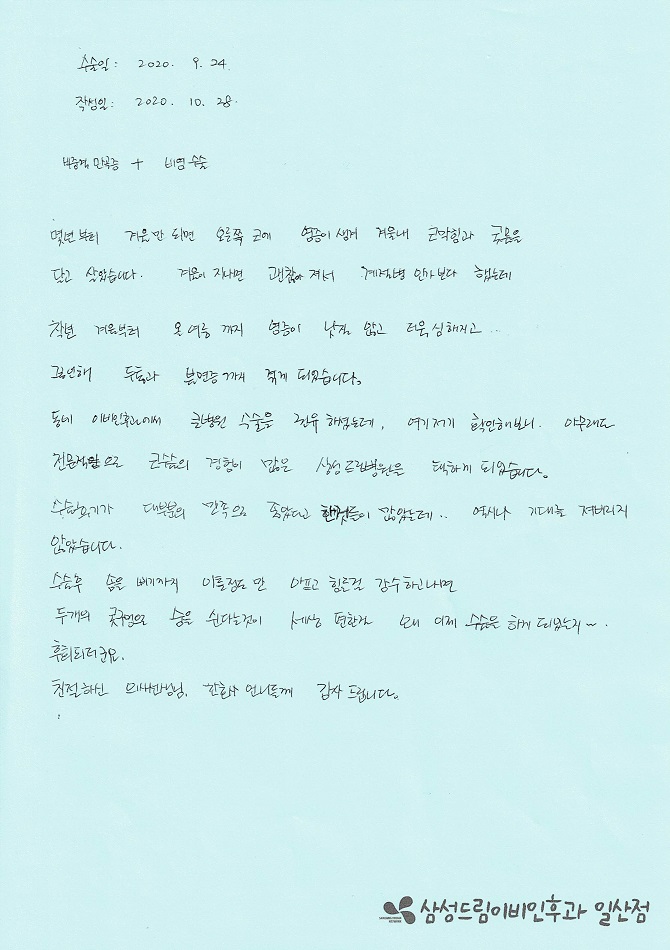 수술일: 2020. 9. 24.
작성일: 2020. 10. 28.
비중격 만곡증 + 비염 수술
몇년부터 겨울만 되면 오른쪽 코에 염증이 생겨 겨울내 코막힘과 콧물을
달고 살았습니다. 겨울이 지나면 괜찮아 져서 계절병 인가보다 했는데
작년 겨울부터 올 여름 까지 염증이 낫질 않고 더욱 심해지고..
두통과 불면증까지 겪게 되었습니다.
동네 이비인후과에서 큰병원 수술을 권유 하셨는데, 여기저기 확인해보니. 아무래도
전문적으로 코수술의 경험이 많은 삼성드림병원을 택하게 되었습니다.
수술후기가 대부분의 만족으로 좋았다고 한것들이 많았는데.. 역시나 기대를 져버리지
않았습니다.
수술후 솜을 빼기까지 이틀정도 만 아프고 힘든걸 감수하고나면
두개의 콧구멍으로 숨을 쉰다는것이 세상 편한걸 왜 이제 수술을 하게 되었는지~.
후회되더군요.
친절하신 의사선생님, 간호사 언니들께 감사 드립니다.
삼성드림이비인후과 일산점